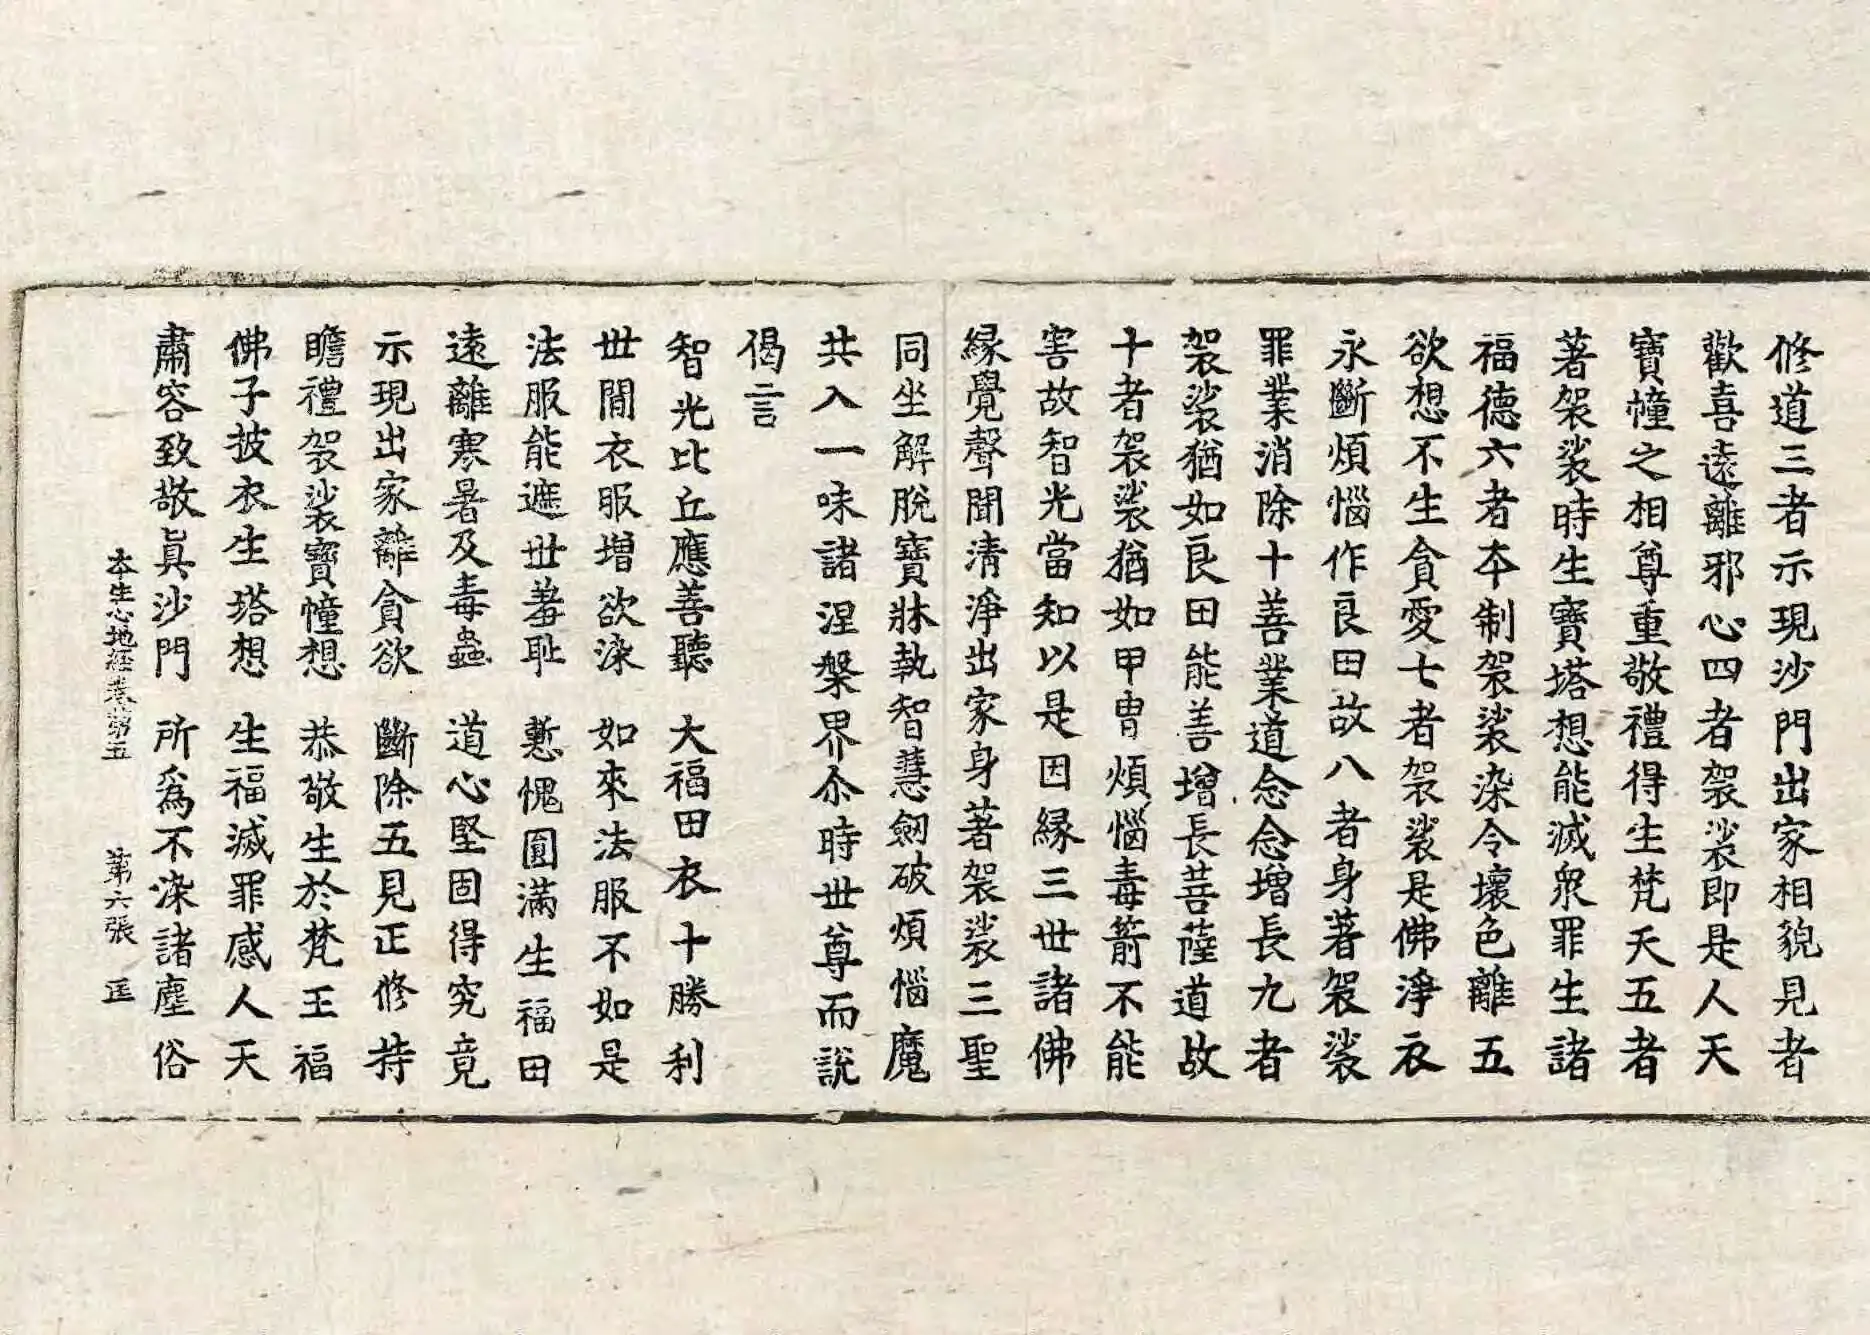 修道三者示現沙門出家相貌見者
歡喜遠離邪心四者袈裟即是人天
寶幢之相尊重敬禮得生梵天五者
著袈裟時生寶塔想能滅衆罪生諸
福德六者本制袈裟染令壞色離五
欲想不生貪愛七者袈裟是佛淨衣
永斷煩惱作良田故八者身著袈裟
罪業消除十善業道念念增長九者
袈裟猶如良田能善增長菩薩道故
十者袈裟猶如甲冑煩惱毒箭不能
害故智光當知以是因緣三世諸佛
緣覺聲聞清淨出家身著袈裟三聖
同坐解脫寶牀執智慧劒破煩惱魔
共入一味諸涅槃界尒時世尊而說
偈言
智光比丘應善聽 大福田衣十勝利
世間衣服增欲染 如來法服不如是
法服能遮世羞耻 慙愧圓滿生福田
遠離寒暑及毒蟲 道心堅固得究竟
示現出家離貪欲 斷除五見正修持
瞻禮袈裟寶幢想 恭敬生於梵王福
佛子披衣生塔想 生福滅罪感人天
肅容致敬眞沙門 所爲不染諸塵俗
本生心地經卷第五 第六張 匡